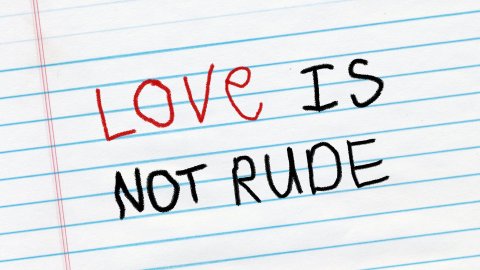 LOVe IS
NOT RUDE